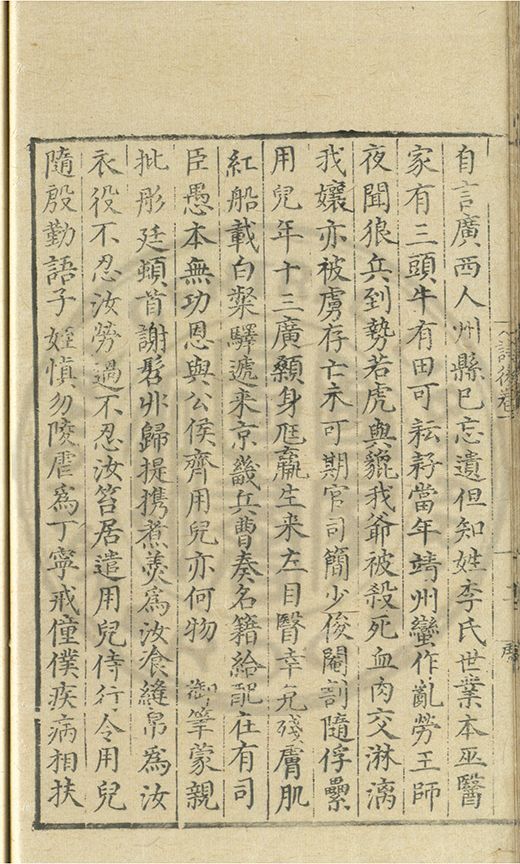 自言廣西人州縣已忘遺但知姓李氏世業本巫醫
家有三頭牛有田可耘耔當年靖州蠻作亂勞王師
夜聞狼兵到勢若虎與貔我爺被殺死血肉交淋漓
我孃亦被虜存亡未可期官司簡少俊閹割隨俘纍
用兒年十三廣顙身尫羸生来左目瞖幸免殘膚肌
紅船載白粲驛遞来京畿兵曹奏名籍給配在有司
臣愚本無功恩與公侯齊用兒亦何物 御筆蒙親
批彤廷頓首謝髽丱歸提携煮羮為汝飡縫帛為汝
衣役不忍汝勞過不忍汝笞居遣用兒侍行令用兒
隨殷勤語子姪愼勿陵虐為丁寧戒僮僕疾病相扶